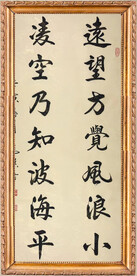 遠望方覺風浪小
凌空乃知波海平